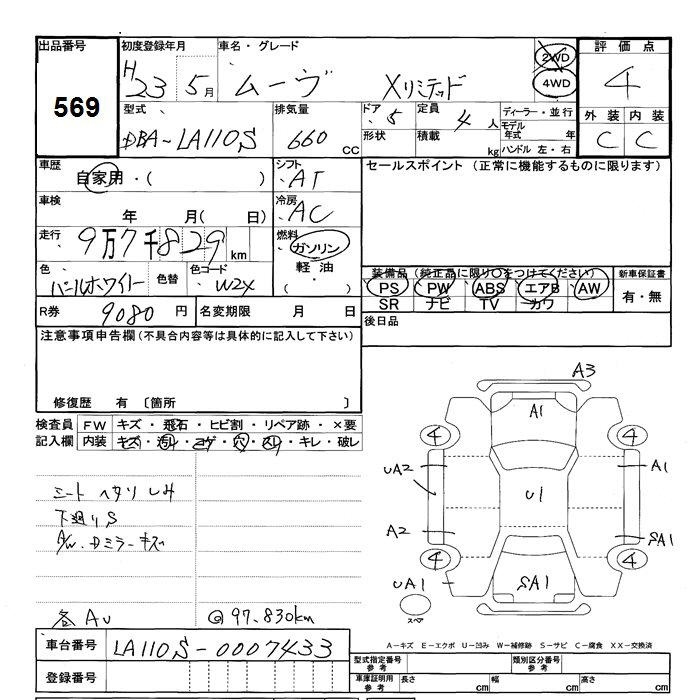 出品番号
569
初度登録年月
H23 5月
車名・グレード
ムーヴ Xリミテッド
2WD
4WD
評価点
4
外装 内装
C C
型式
DBA-LA110S
排気量
660 cc
ドア 5
形状
定員 4人
積載 kg
ディーラー・並行
モデル年式 年
ハンドル 左・右
車歴
自家用・( )
シフト
AT
セールスポイント (正常に機能するものに限ります)
車検
年 月( 日)
冷房
AC
走行
9万7千829km
燃料
ガソリン
軽油
( ・ )
色
パールホワイト
色替
色コード
W24
装備品 (純正品に限り○をつけてください)
PS PW ABS エアB AW
SR ナビ TV カワ
新車保証書
有・無
R券 9080円
名変期限 月 日
後日品
注意事項申告欄(不具合内容等は具体的に記入して下さい)
修復歴 有 〔箇所 〕
検査員記入欄
FW キズ・飛石・ヒビ割・リペア跡・×要
内装 キズ・汚れ・コゲ・穴・スレ・キレ・破レ
シート ヘタリ しみ
下廻りS
A/W・Dミラーキズ
各AU
@97.830km
A3
A1
4 4
UA2 A1
U1
A2 SA1
4 4
UA1 SA1
スペア
A-キズ E-エクボ U-凹み W-補修跡 S-サビ C-腐食 XX-交換済
車台番号 LA110S-0007433
登録番号
型式指定番号 参考
類別区分番号 参考
車庫証明用 参考
長さ cm
幅 cm
高さ cm